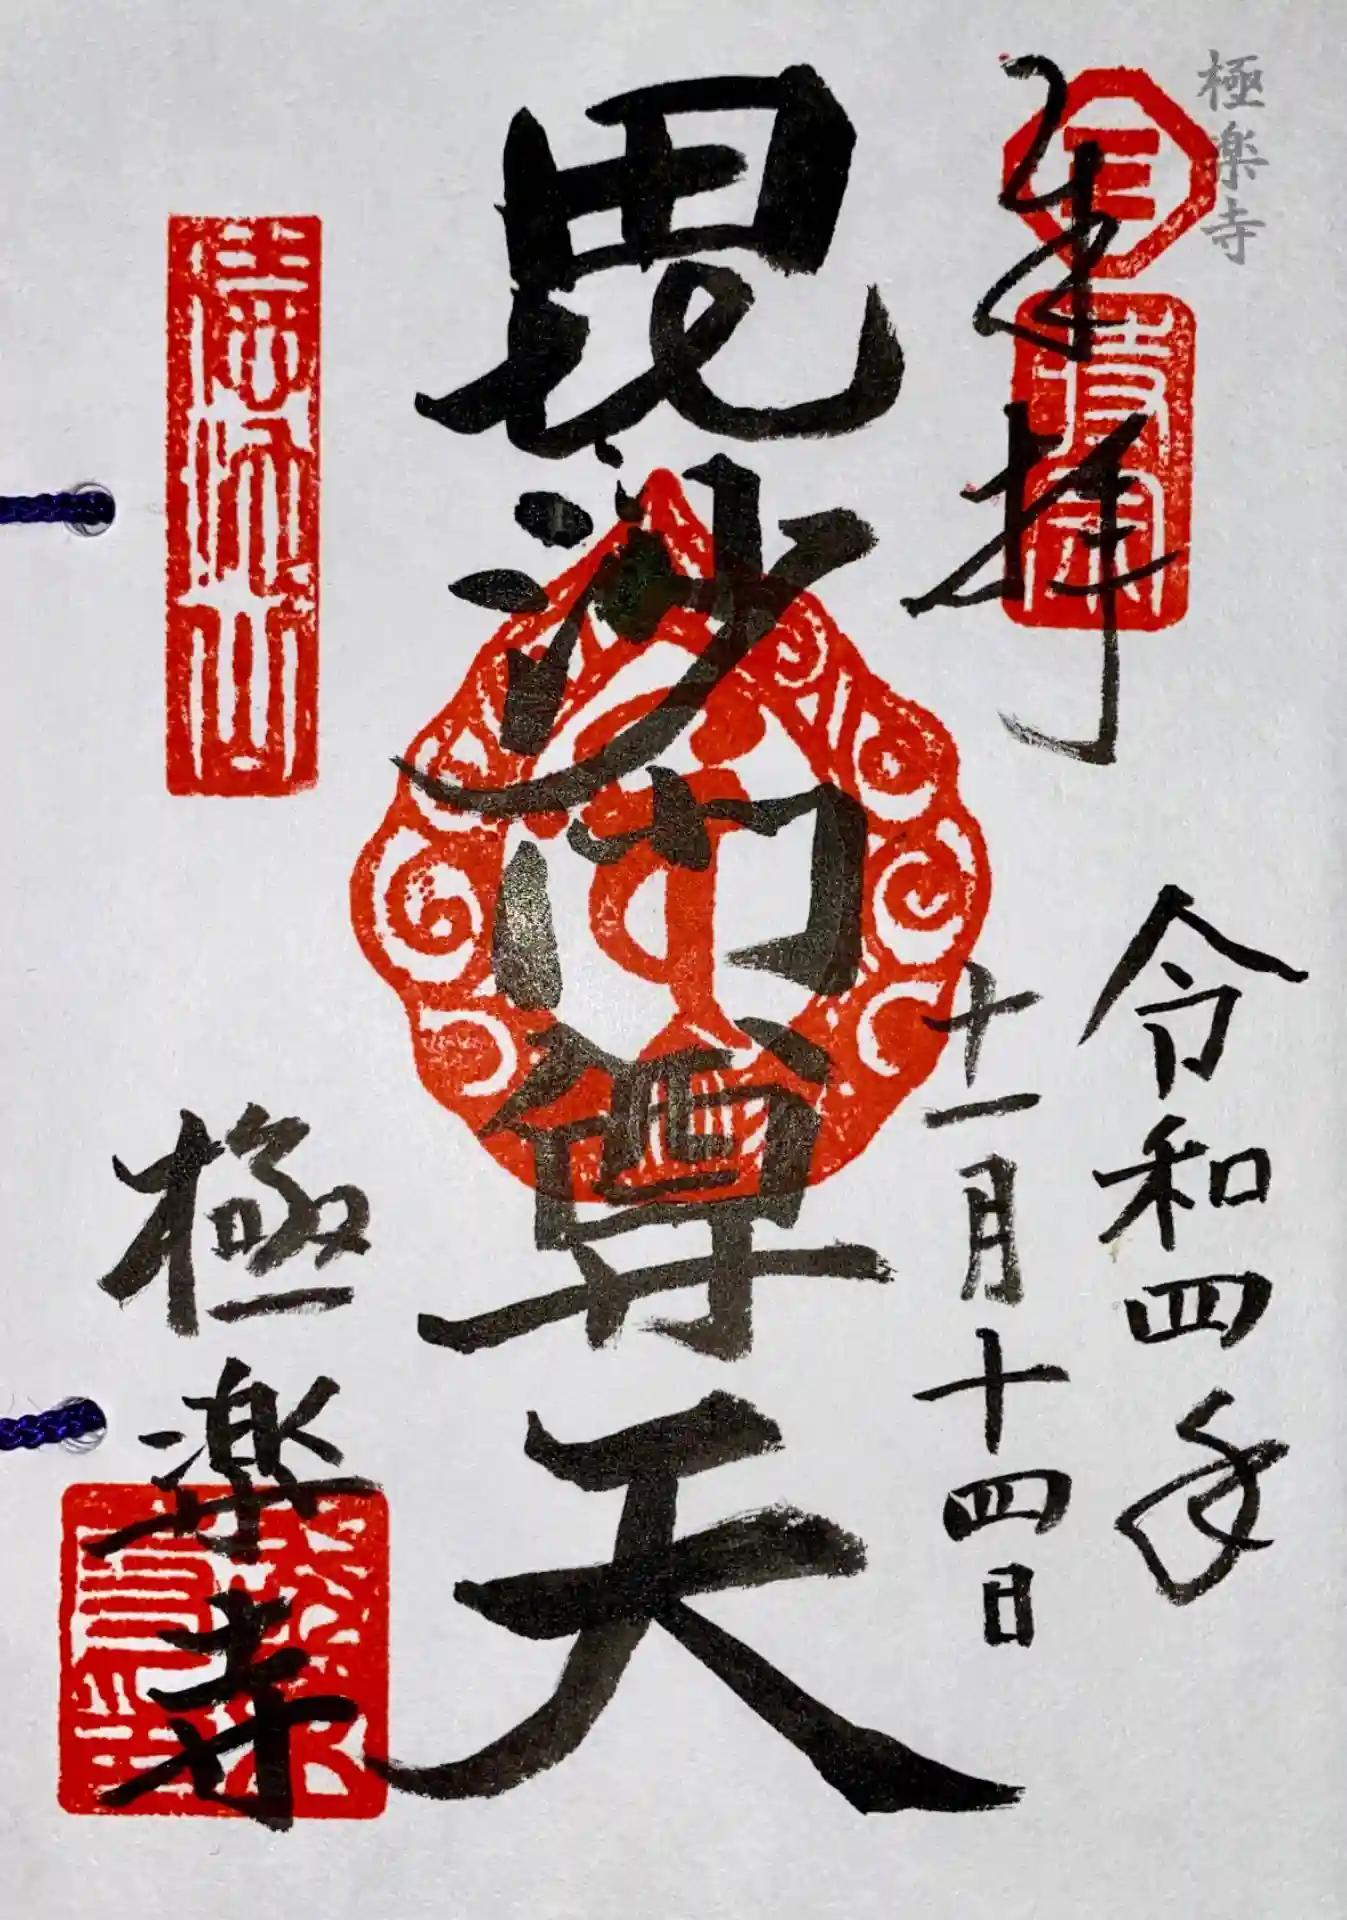 極楽寺
奉拝
令和四年
十一月十四日
毘沙門尊天
極楽寺